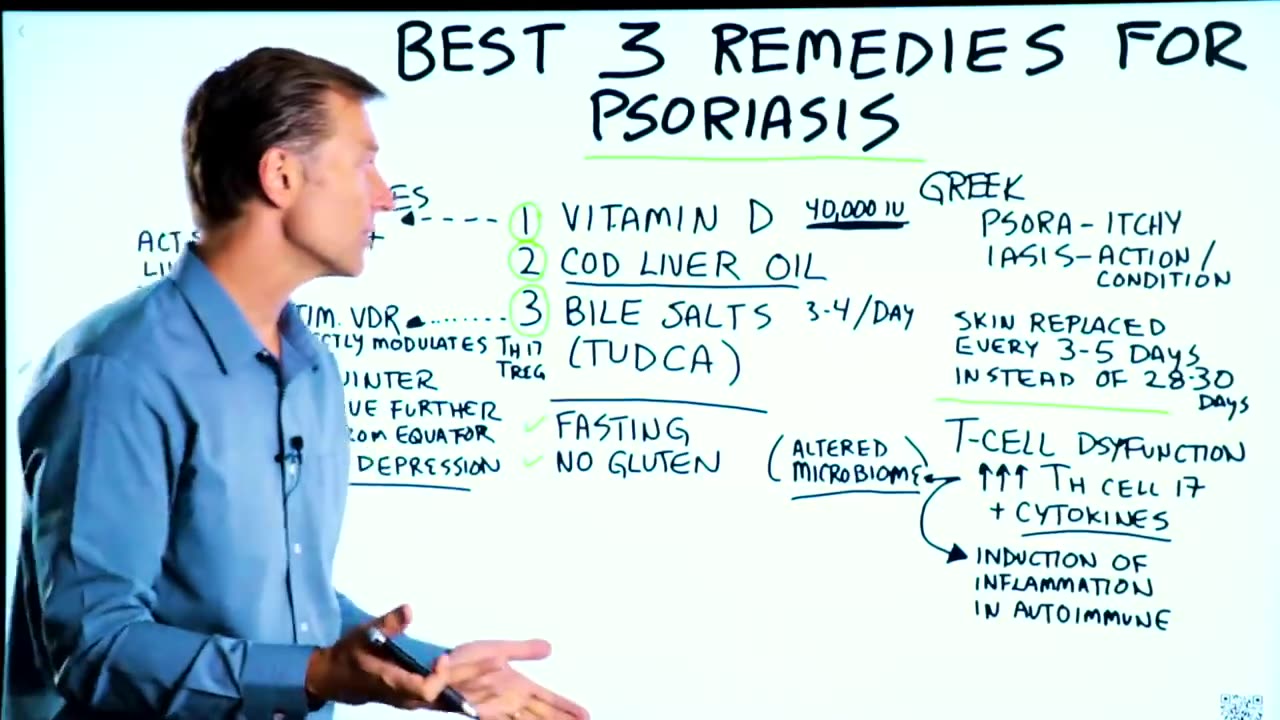 BEST 3 REMEDIES FOR
PSORIASIS
1 VITAMIN D 40,000 IU
2 COD LIVER OIL
3 BILE SALTS 3-4/DAY
(TUDCA)
✓ FASTING
✓ NO GLUTEN
+
VDR
MODULATES TH 17
TREG
FURTHER
EQUATOR
DEPRESSION
GREEK
PSORA - ITCHY
IASIS - ACTION /
CONDITION
SKIN REPLACED
EVERY 3-5 DAYS
INSTEAD OF 28-30
DAYS
T-CELL DSYFUNCTION
↑↑↑ TH CELL 17
+ CYTOKINES
(ALTERED
MICROBIOME)
INDUCTION OF
INFLAMMATION
IN AUTOIMMUNE